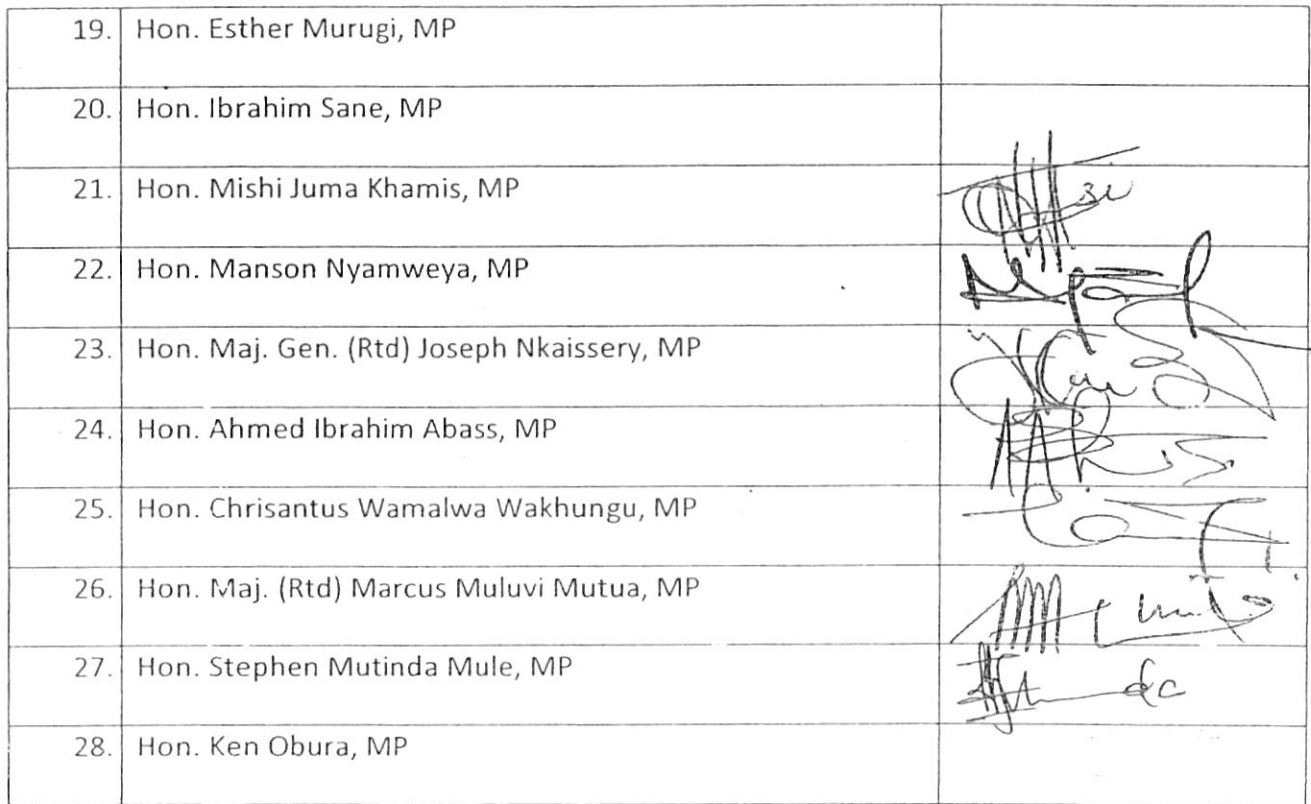 19. Hon. Esther Murugi, MP
20. Hon. Ibrahim Sane, MP
21. Hon. Mishi Juma Khamis, MP
22. Hon. Manson Nyamweya, MP
23. Hon. Maj. Gen. (Rtd) Joseph Nkaissery, MP
24. Hon. Ahmed Ibrahim Abass, MP
25. Hon. Chrisantus Wamalwa Wakhungu, MP
26. Hon. Maj. (Rtd) Marcus Muluvi Mutua, MP
27. Hon. Stephen Mutinda Mule, MP
28. Hon. Ken Obura, MP